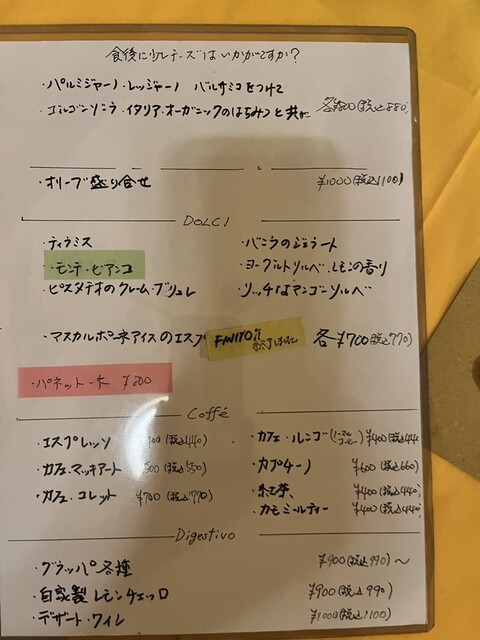 食後に少しチーズはいかがですか?
・パルミジャーノ・レッジャーノ バルサミコをつけて
・ゴルゴンゾーラ・イタリア・オーガニックのはちみつと共に 各¥800(税込880)
・オリーブ盛り合せ ¥1000(税込1100)
DOLCI
・ティラミス ・バニラのジェラート
・モンテ・ビアンコ ・ヨーグルトソルベ、レモンの香り
・ピスタチオのクレーム・ブリュレ ・リッチなマンゴーソルベ
・マスカルポーネアイスのエスプ FINITO!! 終了しました 各¥700(税込770)
・パネットーネ ¥800
Coffé
・エスプレッソ ¥400(税込440) ・カフェ・ルンゴ(ノーマルコーヒー) ¥400(税込440
・カフェ・マッキアート 500(税込550) ・カプチーノ ¥600(税込660)
・カフェ・コレット ¥700(税込770) ・紅茶 ¥400(税込440)
・カモミールティー ¥400(税込440)
Digestivo
・グラッパ各種 ¥900(税込990)〜
・自家製レモンチェッロ ¥900(税込990)
・デザート・ワイン ¥1000(税込1100)